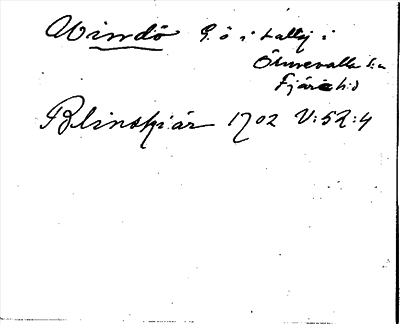 Windö g. ö i Lallej i
Ölmevalla sn
Fjäre hd
Blinskiär 1702 V:52:4